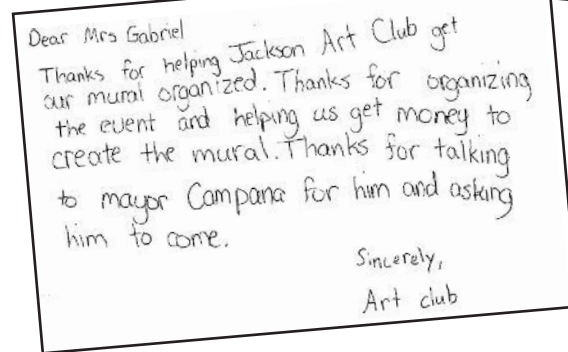 Dear Mrs Gabriel
Thanks for helping Jackson Art Club get
our mural organized. Thanks for organizing
the event and helping us get money to
create the mural. Thanks for talking
to mayor Campana for him and asking
him to come.
Sincerely,
Art club